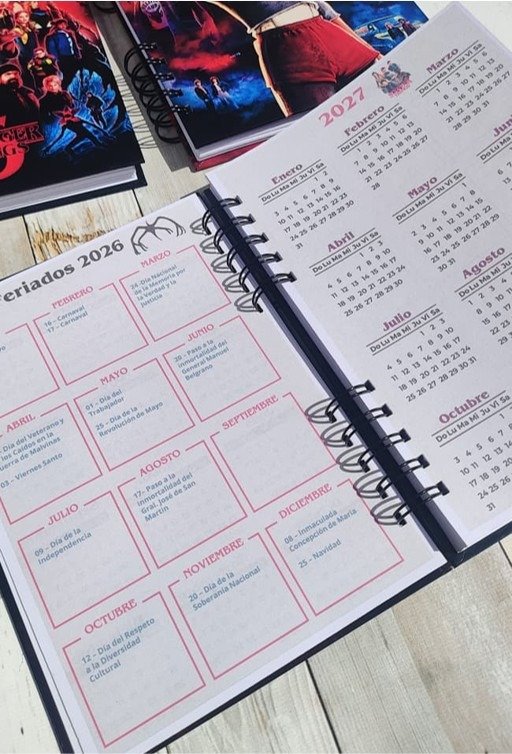 GER
GS
eriados 2026
FEBRERO
16 - Carnaval
17 - Carnaval
MARZO
24-Día Nacional
de la Memoria por
la Verdad y la
Justicia
ABRIL
Día del Veterano y
los Caídos en la
uerra de Malvinas
03 - Viernes Santo
MAYO
01 - Día del
Trabajador
25 - Día de la
Revolución de Mayo
JUNIO
20 - Paso a la
inmortalidad del
General Manuel
Belgrano
JULIO
09 - Día de la
Independencia
AGOSTO
17- Paso a la
inmortalidad del
Gral. José de San
Martín
SEPTIEMBRE
OCTUBRE
12 - Día del Respeto
a la Diversidad
Cultural
NOVIEMBRE
20 - Día de la
Soberanía Nacional
DICIEMBRE
08 - Inmaculada
Concepción de María
25 - Navidad
2027
Enero
Do Lu Ma Mi Ju Vi Sa
1 2
3 4 5 6 7 8 9
10 11 12 13 14 15 16
17 18 19 20 21 22 23
24 25 26 27 28 29 30
31
Febrero
Do Lu Ma Mi Ju Vi Sa
1 2 3 4 5 6
7 8 9 10 11 12 13
14 15 16 17 18 19 20
21 22 23 24 25 26 27
28
Marzo
Do Lu Ma Mi Ju Vi Sa
1 2 3 4 5 6
7 8 9 10 11 12 13
14 15 16 17 18 19 20
21 22 23 24 25 26 27
28 29 30 31
Abril
Do Lu Ma Mi Ju Vi Sa
1 2 3
4 5 6 7 8 9 10
11 12 13 14 15 16 17
18 19 20 21 22 23 24
25 26 27 28 29 30
Mayo
Do Lu Ma Mi Ju Vi Sa
1
2 3 4 5 6 7 8
9 10 11 12 13 14 15
16 17 18 19 20 21 22
23 24 25 26 27 28 29
30 31
Juni
Do Lu Ma
Julio
Do Lu Ma Mi Ju Vi Sa
1 2 3
4 5 6 7 8 9 10
11 12 13 14 15 16 17
18 19 20 21 22 23 24
25 26 27 28 29 30 31
Agosto
Do Lu Ma Mi Ju
Octubre
Do Lu Ma Mi Ju Vi Sa